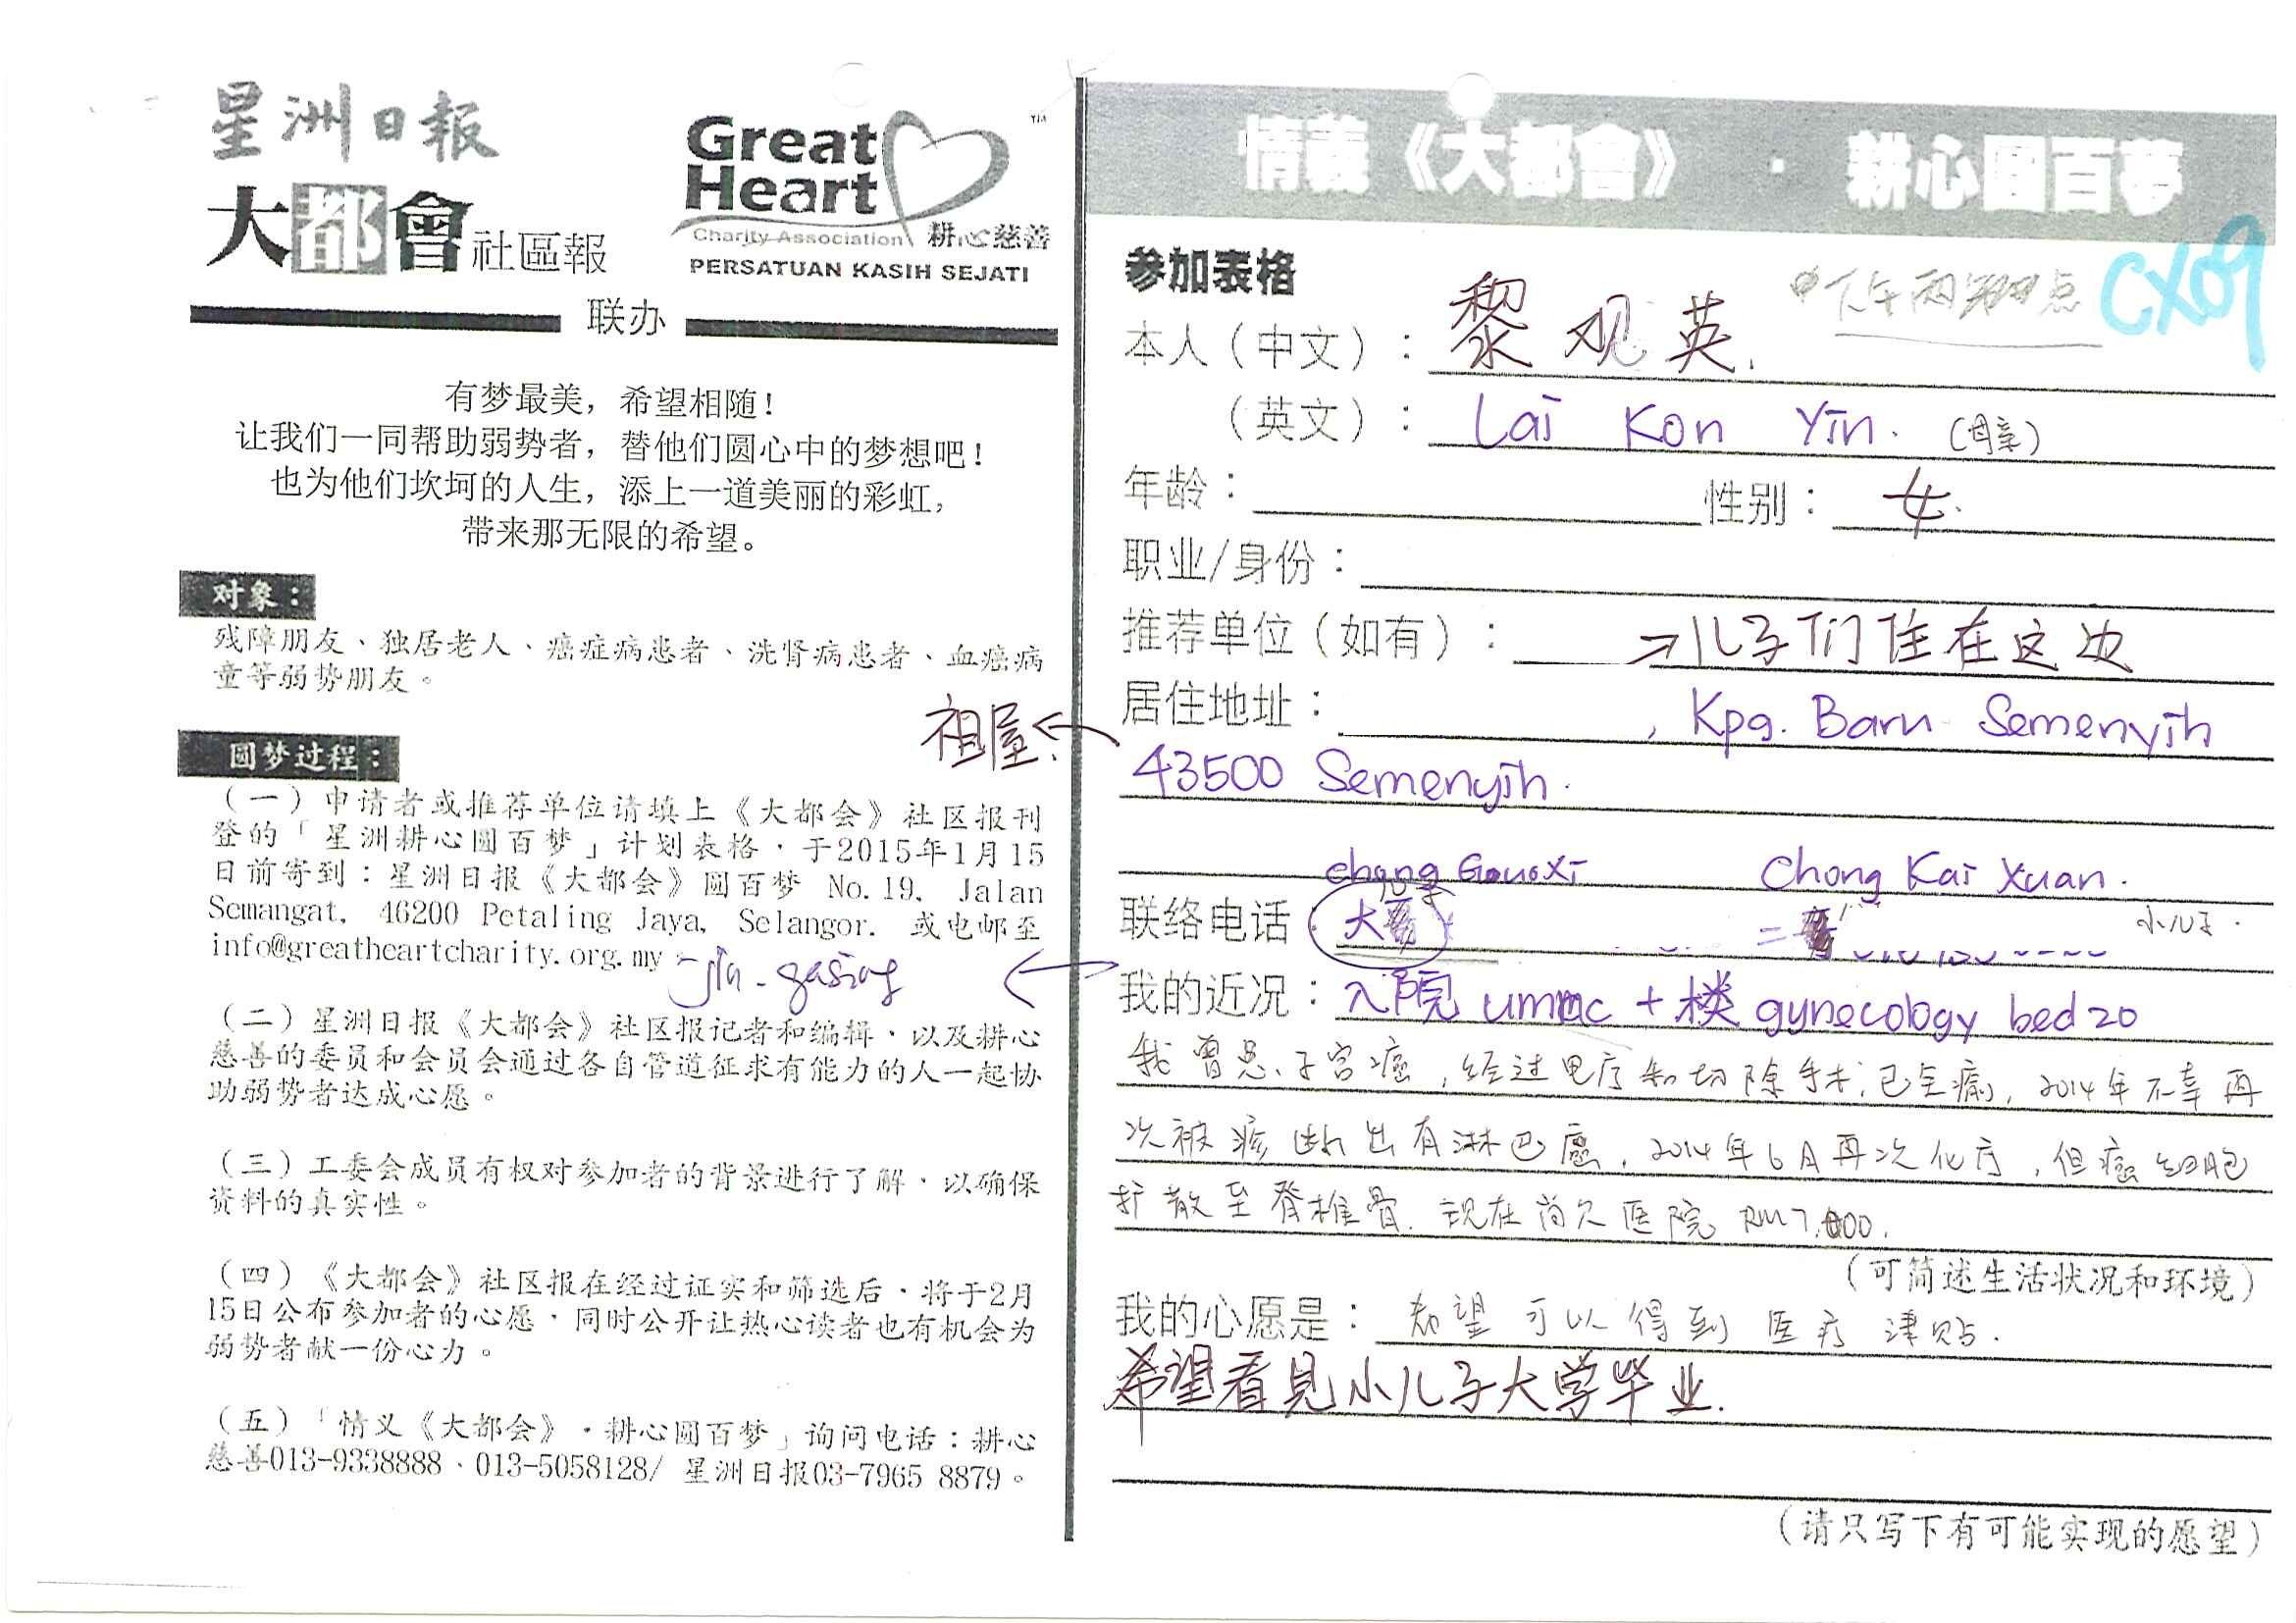 星洲日报
大都會社區報
Great Heart
Charity Association 耕心慈善
PERSATUAN KASIH SEJATI
TM
联办
有梦最美，希望相随！
让我们一同帮助弱势者，替他们圆心中的梦想吧！
也为他们坎坷的人生，添上一道美丽的彩虹，
带来那无限的希望。
对象：
残障朋友、独居老人、癌症病患者、洗肾病患者、血癌病
童等弱势朋友。
圆梦过程：
（一）申请者或推荐单位请填上《大都会》社区报刊
登的「星洲耕心圆百梦」计划表格，于2015年1月15
日前寄到：星洲日报《大都会》圆百梦 No.19, Jalan
Semangat, 46200 Petaling Jaya, Selangor. 或电邮至
info@greatheartcharity.org.my。
（二）星洲日报《大都会》社区报记者和编辑，以及耕心
慈善的委员和会员会通过各自管道征求有能力的人一起协
助弱势者达成心愿。
（三）工委会成员有权对参加者的背景进行了解，以确保
资料的真实性。
（四）《大都会》社区报在经过证实和筛选后，将于2月
15日公布参加者的心愿，同时公开让热心读者也有机会为
弱势者献一份心力。
（五）「情义《大都会》·耕心圆百梦」询问电话：耕心
慈善013-9338888、013-5058128/ 星洲日报03-7965 8879。
情義《大都會》·耕心圓百夢
CX09
参加表格
下午两 点
本人（中文）：黎观英.
（英文）：Lai Kon Yin. (母亲)
年龄： 性别：女.
职业/身份：
推荐单位（如有）：→儿子们住在这边
居住地址： , Kpg. Baru Semenyih
祖屋.
43500 Semenyih.
Chong Guo Xi Chong Kai Xuan.
联络电话：大 二 小儿子.
我的近况：入院 ummc + 楼 gynecology bed 20
我曾患子宫癌，经过电疗和切除手术，已全癒，2014年不幸再
次被诊断出有淋巴癌，2014年6月再次化疗，但癌细胞
扩散至脊椎骨. 现在尚欠医院 RM7,000.
（可简述生活状况和环境）
我的心愿是：希望可以得到医疗津贴.
希望看見小儿子大学毕业.
（请只写下有可能实现的愿望）